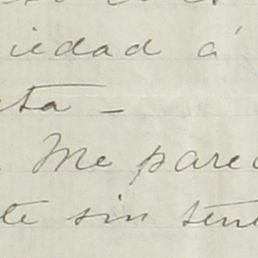 iedad á
ta —
Me parec
te sin tene